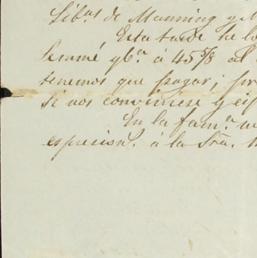 Lib.s de Manning y M
Esta tarde he lo
Jeramé gb.n á 45 5/8 al
tenemos que pagar; pr
si nos conviniese y es
En la fam.a n
espresion.s á la Sra.